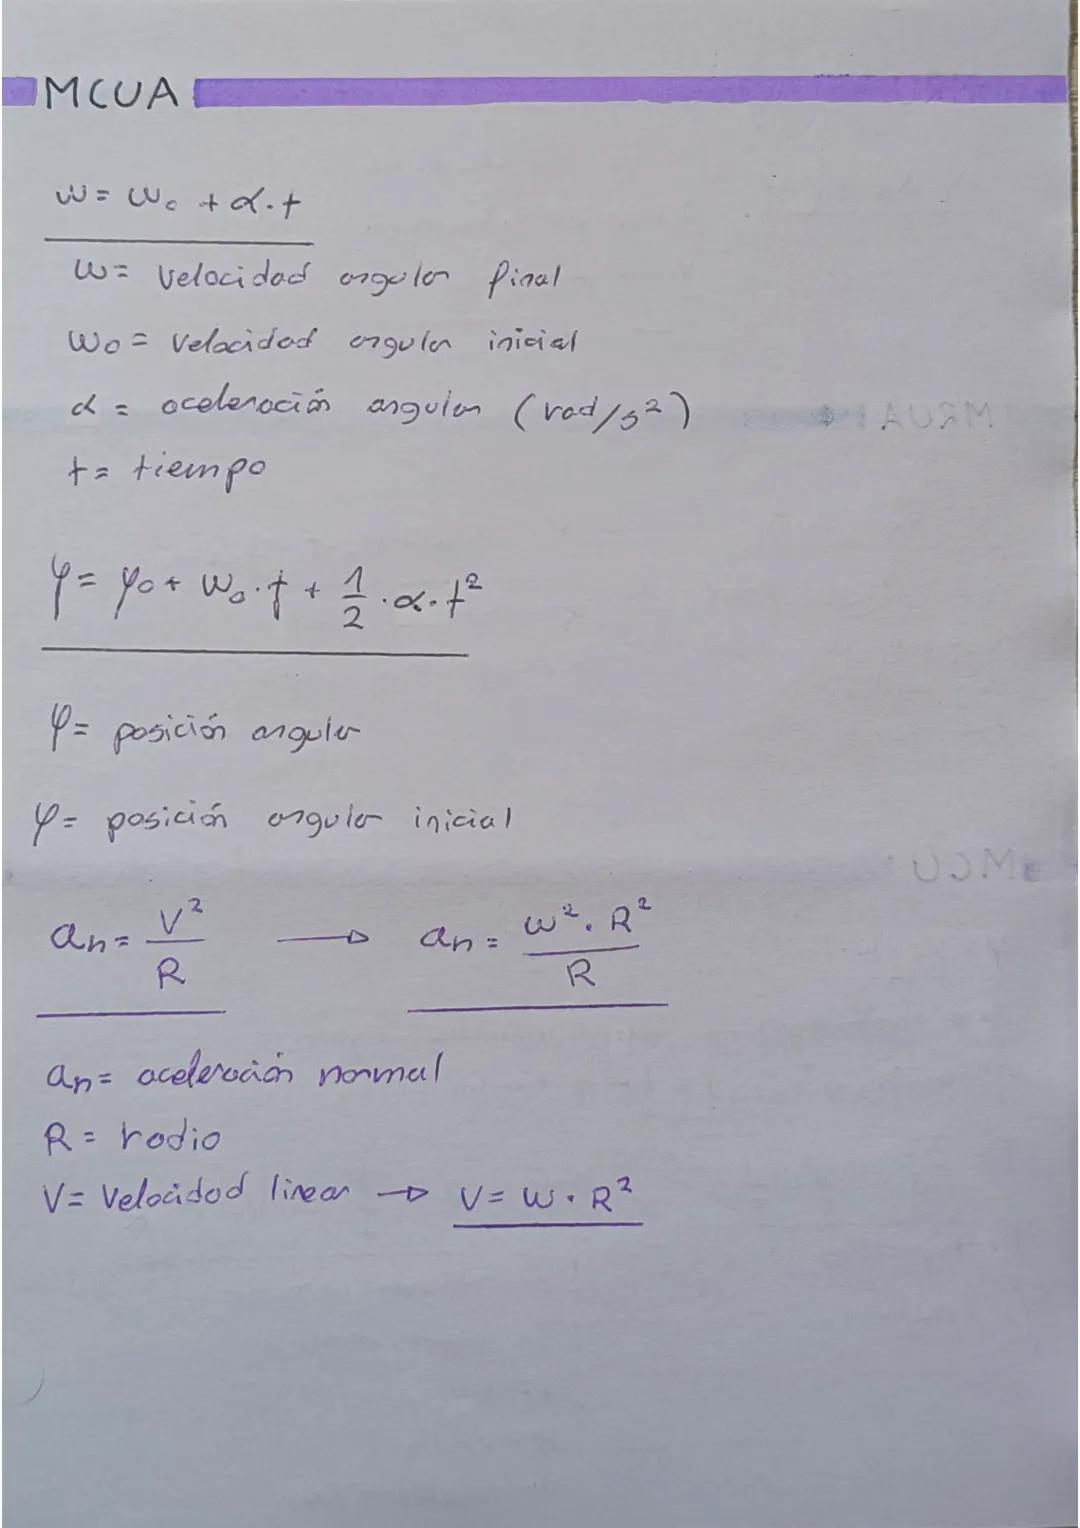 MCUA
w = w₀ + α·t
w = velocidad angular final
w₀ = velocidad angular inicial
α = aceleración angular (rad/s²)
t = tiempo
φ = φ₀ + w₀·t + 1/2·α·t²
φ = posición angular
φ = posición angular inicial
an = V²/R → an = w²·R²/R
an = aceleración normal
R = radio
V = Velocidad linear → V = w·R²
MRUA
MCU